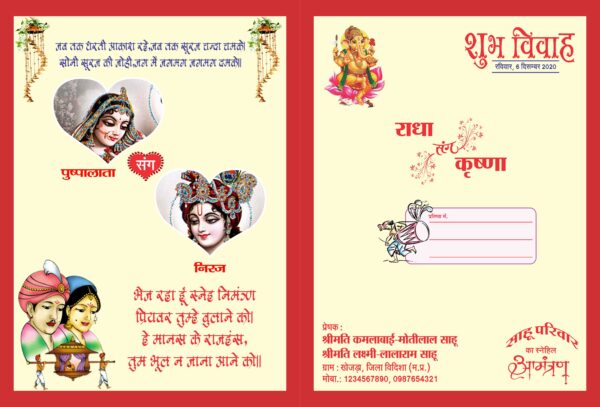 जब तक धरती आकाश रहे,जब तक सूरज चन्दा चमके।
सोनी सूरज की जोड़ी,जग में जगमग जगमग दमके।।
पुष्पालाता
संग
निरज
भेज रहा हूँ स्नेह निमंत्रण
प्रियवर तुम्हे बुलाने को।
हे मानस के राजहंस,
तुम भूल न जाना आने को।।
शुभ विवाह
रविवार, 6 दिसम्बर 2020
राधा
संग
कृष्णा
प्रतिष्ठा में,
प्रेषक :
श्रीमति कमलाबाई-मोतीलाल साहू
श्रीमति लक्ष्मी-लालाराम साहू
ग्राम : खोजड़ा, जिला विदिशा (म.प्र.)
मोबा.: 1234567890, 0987654321
साहू परिवार
का स्नेहिल
आमंत्रण